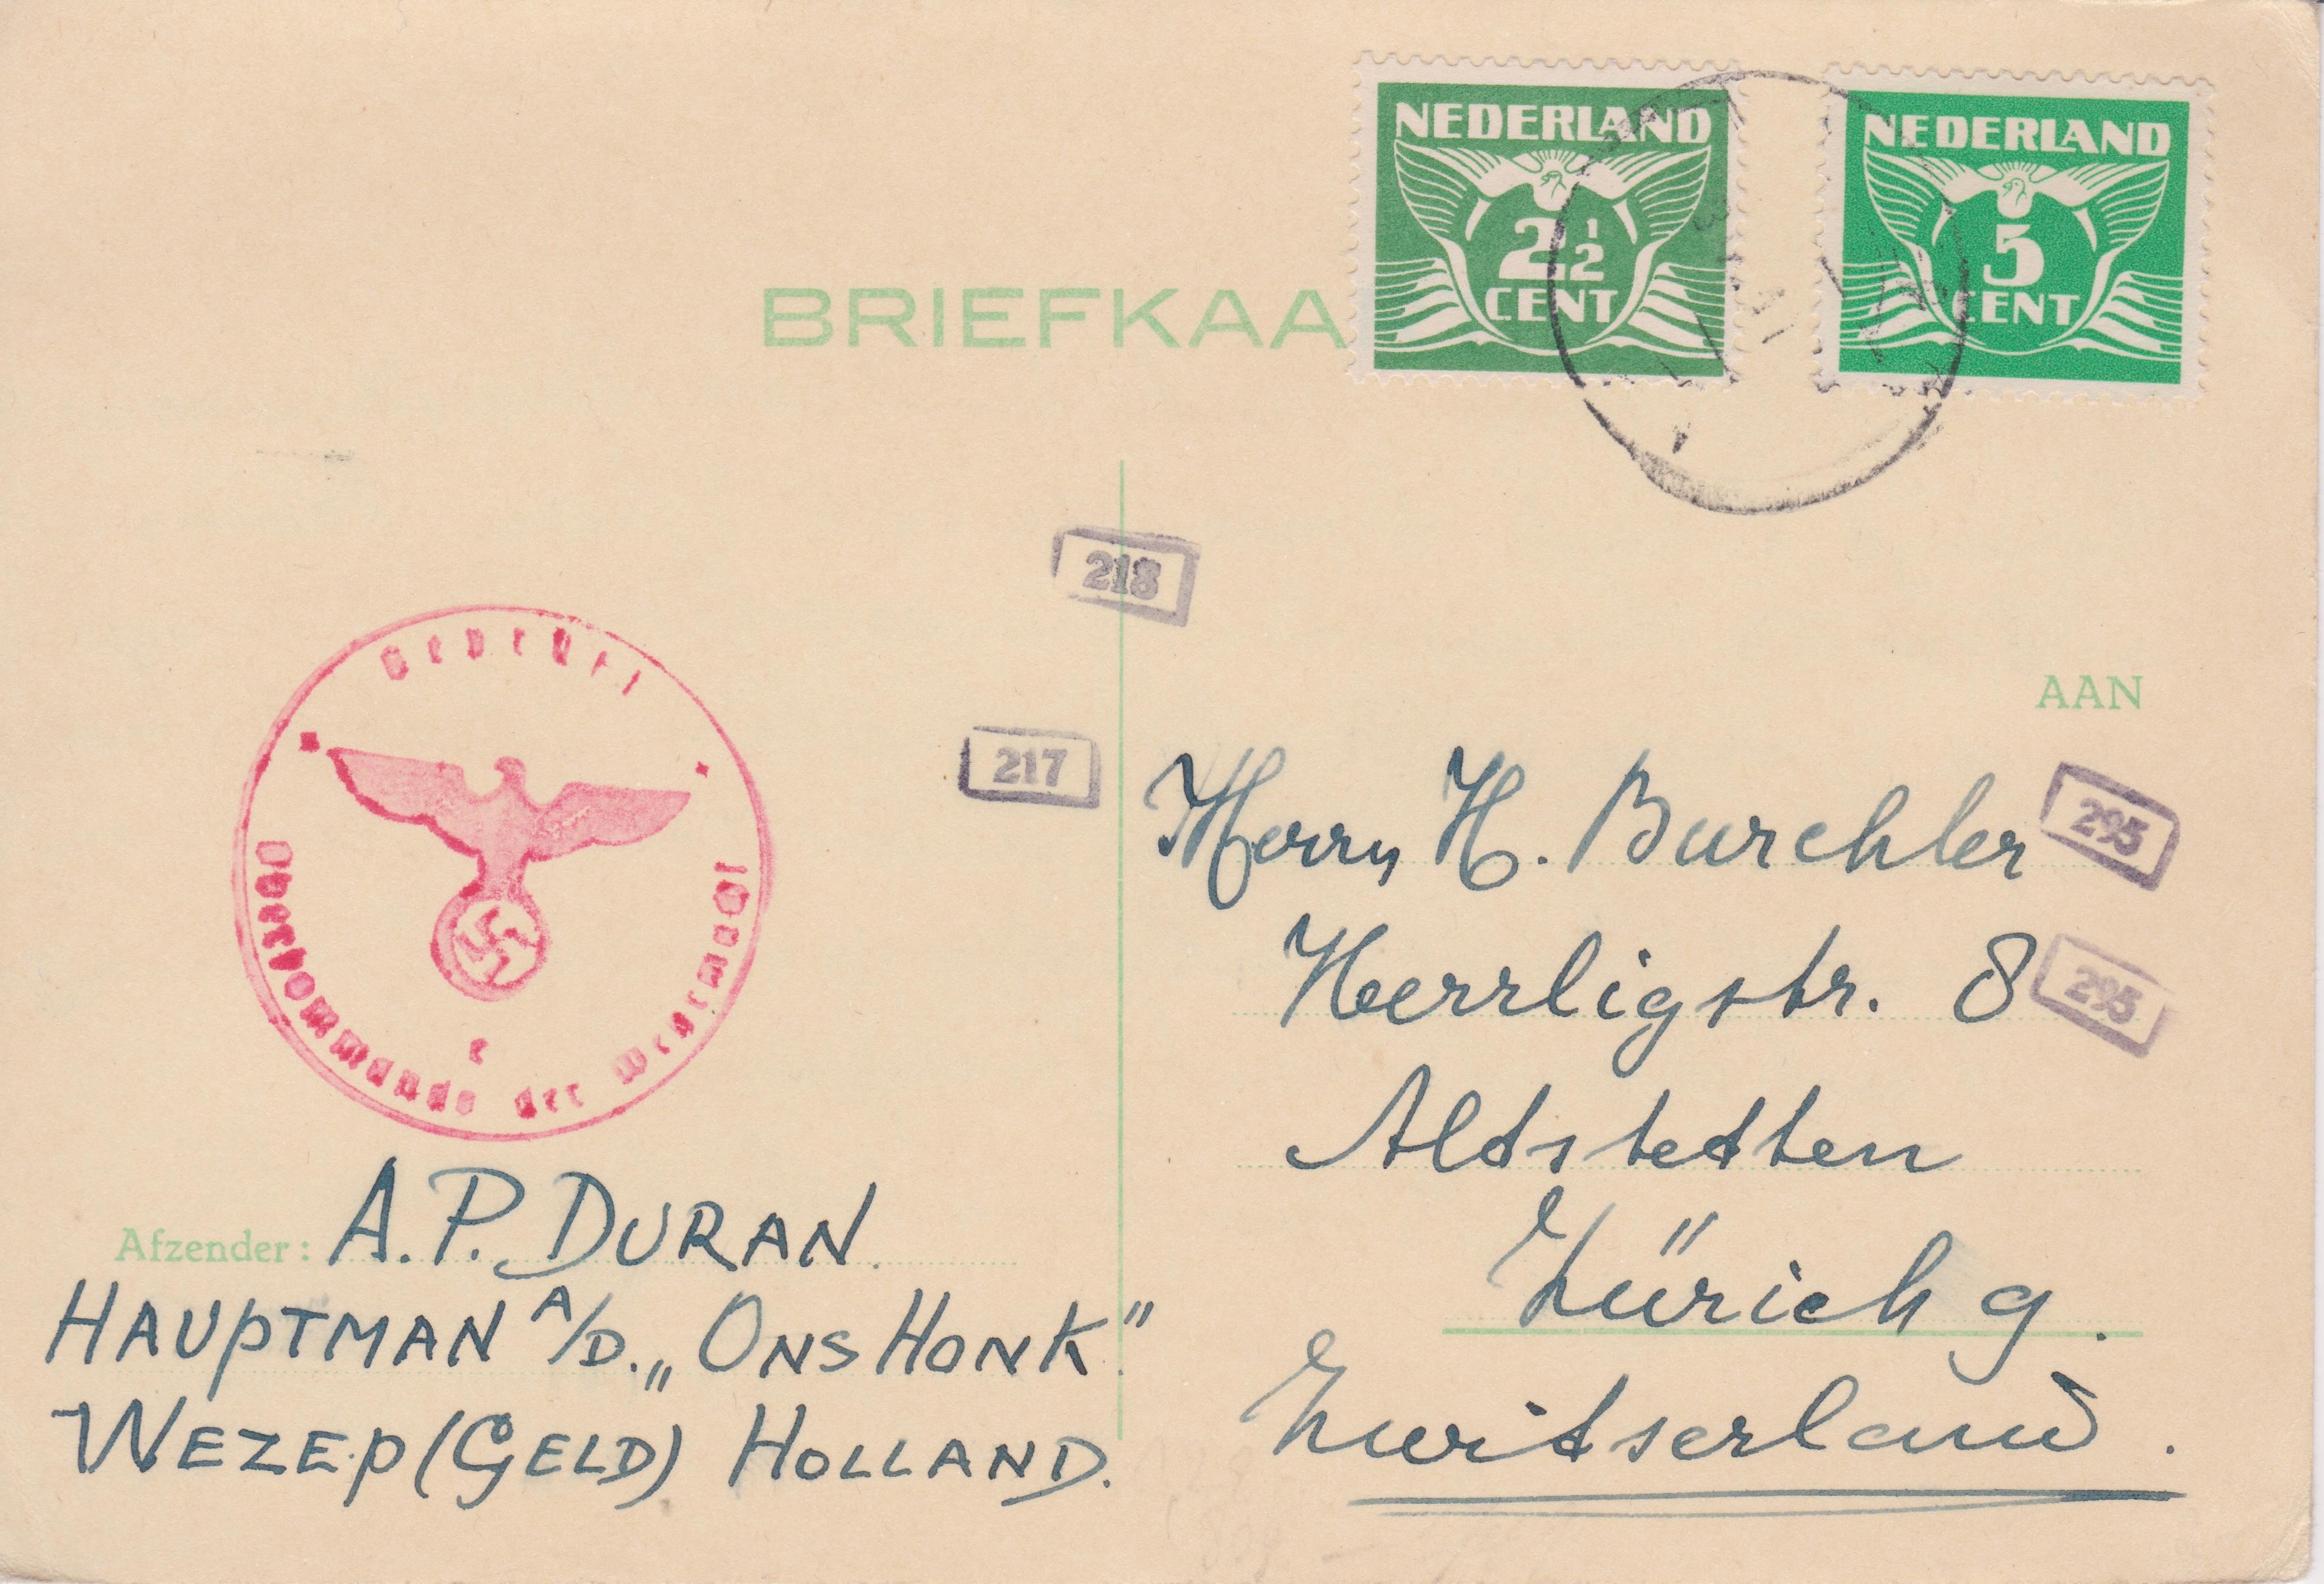 NEDERLAND
2½
CENT
NEDERLAND
5
CENT
BRIEFKAA
218
Geöffnet
Oberkommando der Wehrmacht
e
217
AAN
Herrn H. Burchler
295
Herrligstr. 8
295
Altstetten
Zürich 9.
Zwitserland.
Afzender: A.P. DURAN.
HAUPTMAN A/D. „ONS HONK"
WEZEP (GELD) HOLLAND.